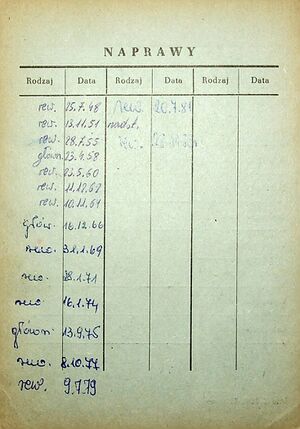 NAPRAWY
Rodzaj Data Rodzaj Data Rodzaj Data
rew. 15.7.48 rew. 20.7.81
rew. 13.11.51
rew. 28.7.55 rew.
główn. 23.4.58
rew. 23.5.60
rew.
rew. 10.11.64
główn. 16.12.66
rew. 31.1.69
rew. 28.1.71
rew. 16.1.74
główn. 13.9.75
rew. 8.10.77
rew. 9.7.79